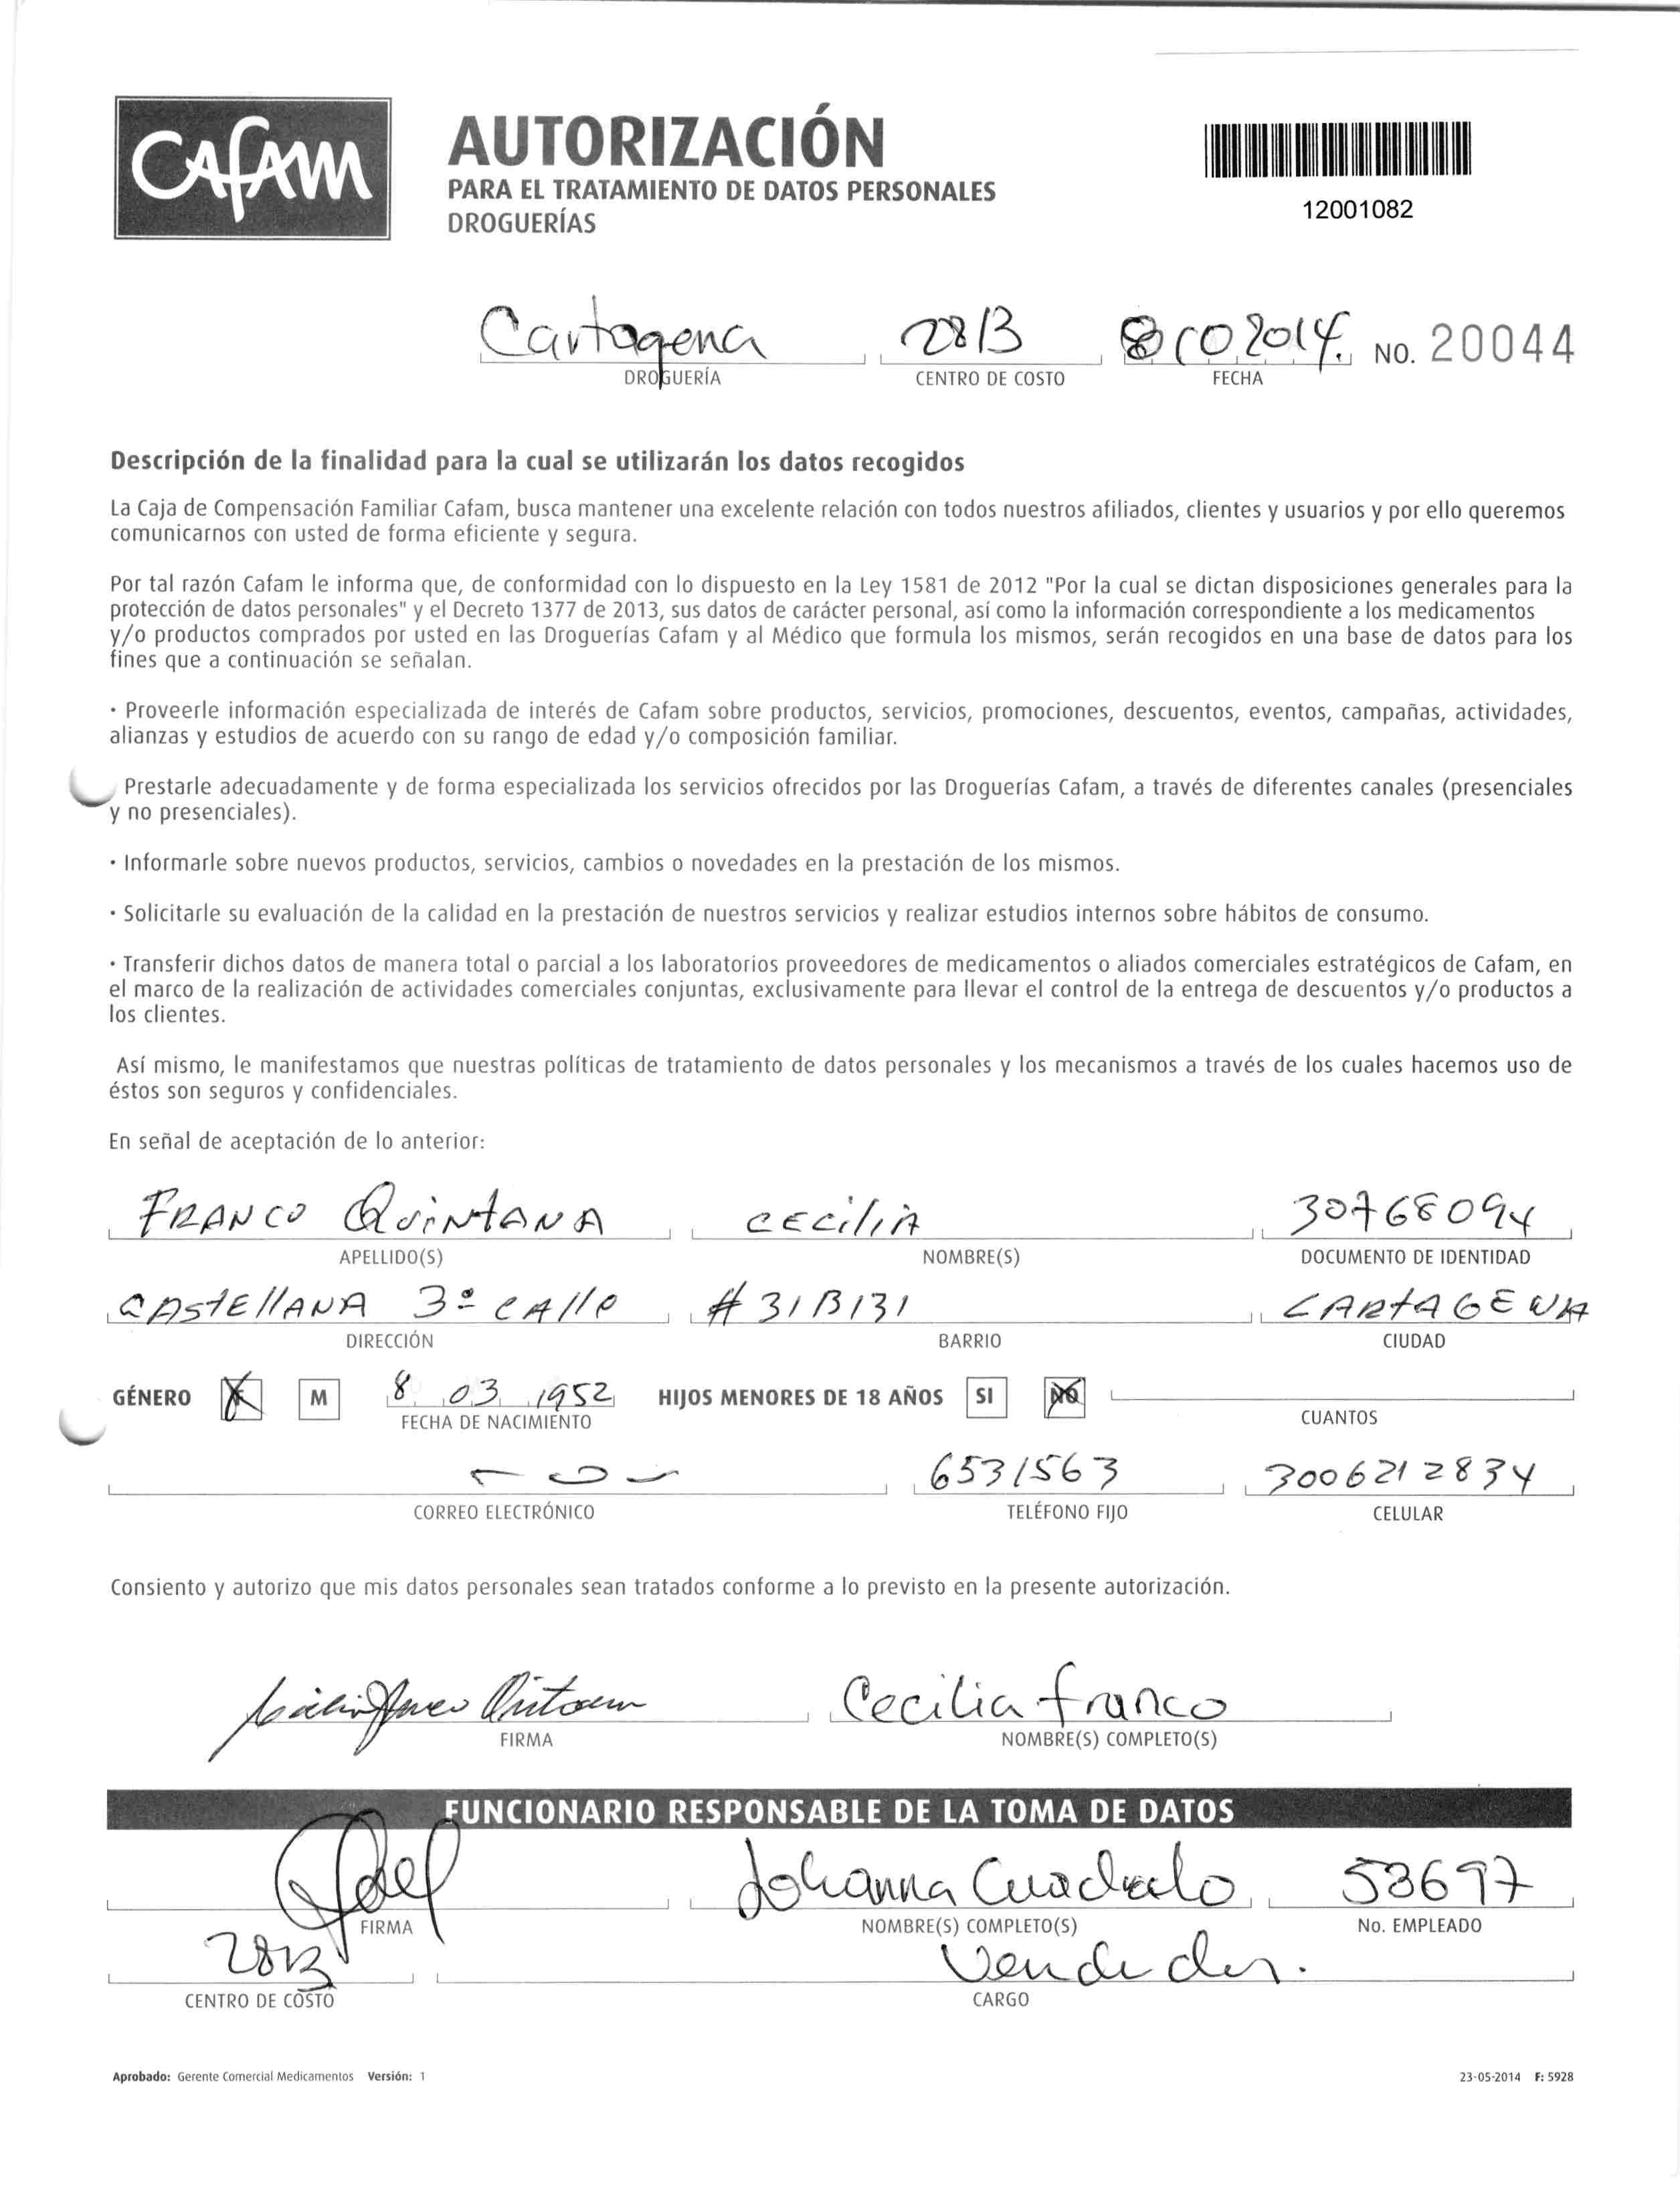 CAFAM
AUTORIZACIÓN
PARA EL TRATAMIENTO DE DATOS PERSONALES
DROGUERÍAS
12001082
Cartagena 2813 2014. NO. 20044
DROGUERÍA CENTRO DE COSTO FECHA
Descripción de la finalidad para la cual se utilizarán los datos recogidos
La Caja de Compensación Familiar Cafam, busca mantener una excelente relación con todos nuestros afiliados, clientes y usuarios y por ello queremos
comunicarnos con usted de forma eficiente y segura.
Por tal razón Cafam le informa que, de conformidad con lo dispuesto en la Ley 1581 de 2012 "Por la cual se dictan disposiciones generales para la
protección de datos personales" y el Decreto 1377 de 2013, sus datos de carácter personal, así como la información correspondiente a los medicamentos
y/o productos comprados por usted en las Droguerías Cafam y al Médico que formula los mismos, serán recogidos en una base de datos para los
fines que a continuación se señalan.
· Proveerle información especializada de interés de Cafam sobre productos, servicios, promociones, descuentos, eventos, campañas, actividades,
alianzas y estudios de acuerdo con su rango de edad y/o composición familiar.
Prestarle adecuadamente y de forma especializada los servicios ofrecidos por las Droguerías Cafam, a través de diferentes canales (presenciales
y no presenciales).
· Informarle sobre nuevos productos, servicios, cambios o novedades en la prestación de los mismos.
· Solicitarle su evaluación de la calidad en la prestación de nuestros servicios y realizar estudios internos sobre hábitos de consumo.
· Transferir dichos datos de manera total o parcial a los laboratorios proveedores de medicamentos o aliados comerciales estratégicos de Cafam, en
el marco de la realización de actividades comerciales conjuntas, exclusivamente para llevar el control de la entrega de descuentos y/o productos a
los clientes.
Así mismo, le manifestamos que nuestras políticas de tratamiento de datos personales y los mecanismos a través de los cuales hacemos uso de
éstos son seguros y confidenciales.
En señal de aceptación de lo anterior:
FRANCO QuiNtANA CECiliA 30768094
APELLIDO(S) NOMBRE(S) DOCUMENTO DE IDENTIDAD
CAStEllANA 3º CAlle # 31B131 CARtAGENA
DIRECCIÓN BARRIO CIUDAD
GÉNERO F M 8 03 1952 HIJOS MENORES DE 18 AÑOS SI NO
FECHA DE NACIMIENTO CUANTOS
- 0 - 6531563 3006212834
CORREO ELECTRÓNICO TELÉFONO FIJO CELULAR
Consiento y autorizo que mis datos personales sean tratados conforme a lo previsto en la presente autorización.
Cecilia franco
FIRMA NOMBRE(S) COMPLETO(S)
FUNCIONARIO RESPONSABLE DE LA TOMA DE DATOS
Johanna Cuadrado 53697
FIRMA NOMBRE(S) COMPLETO(S) No. EMPLEADO
2813 Vendedor.
CENTRO DE COSTO CARGO
Aprobado: Gerente Comercial Medicamentos Versión: 1 23-05-2014 F: 5928